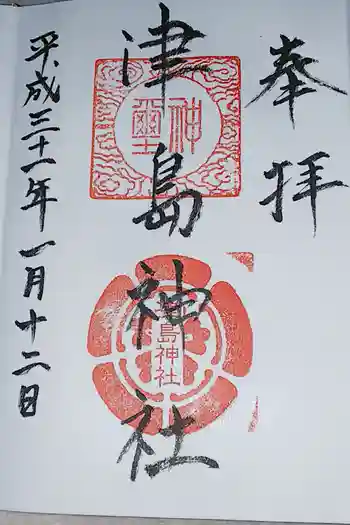 奉拝
津島神社
神璽
島神社
平成三十一年一月十二日